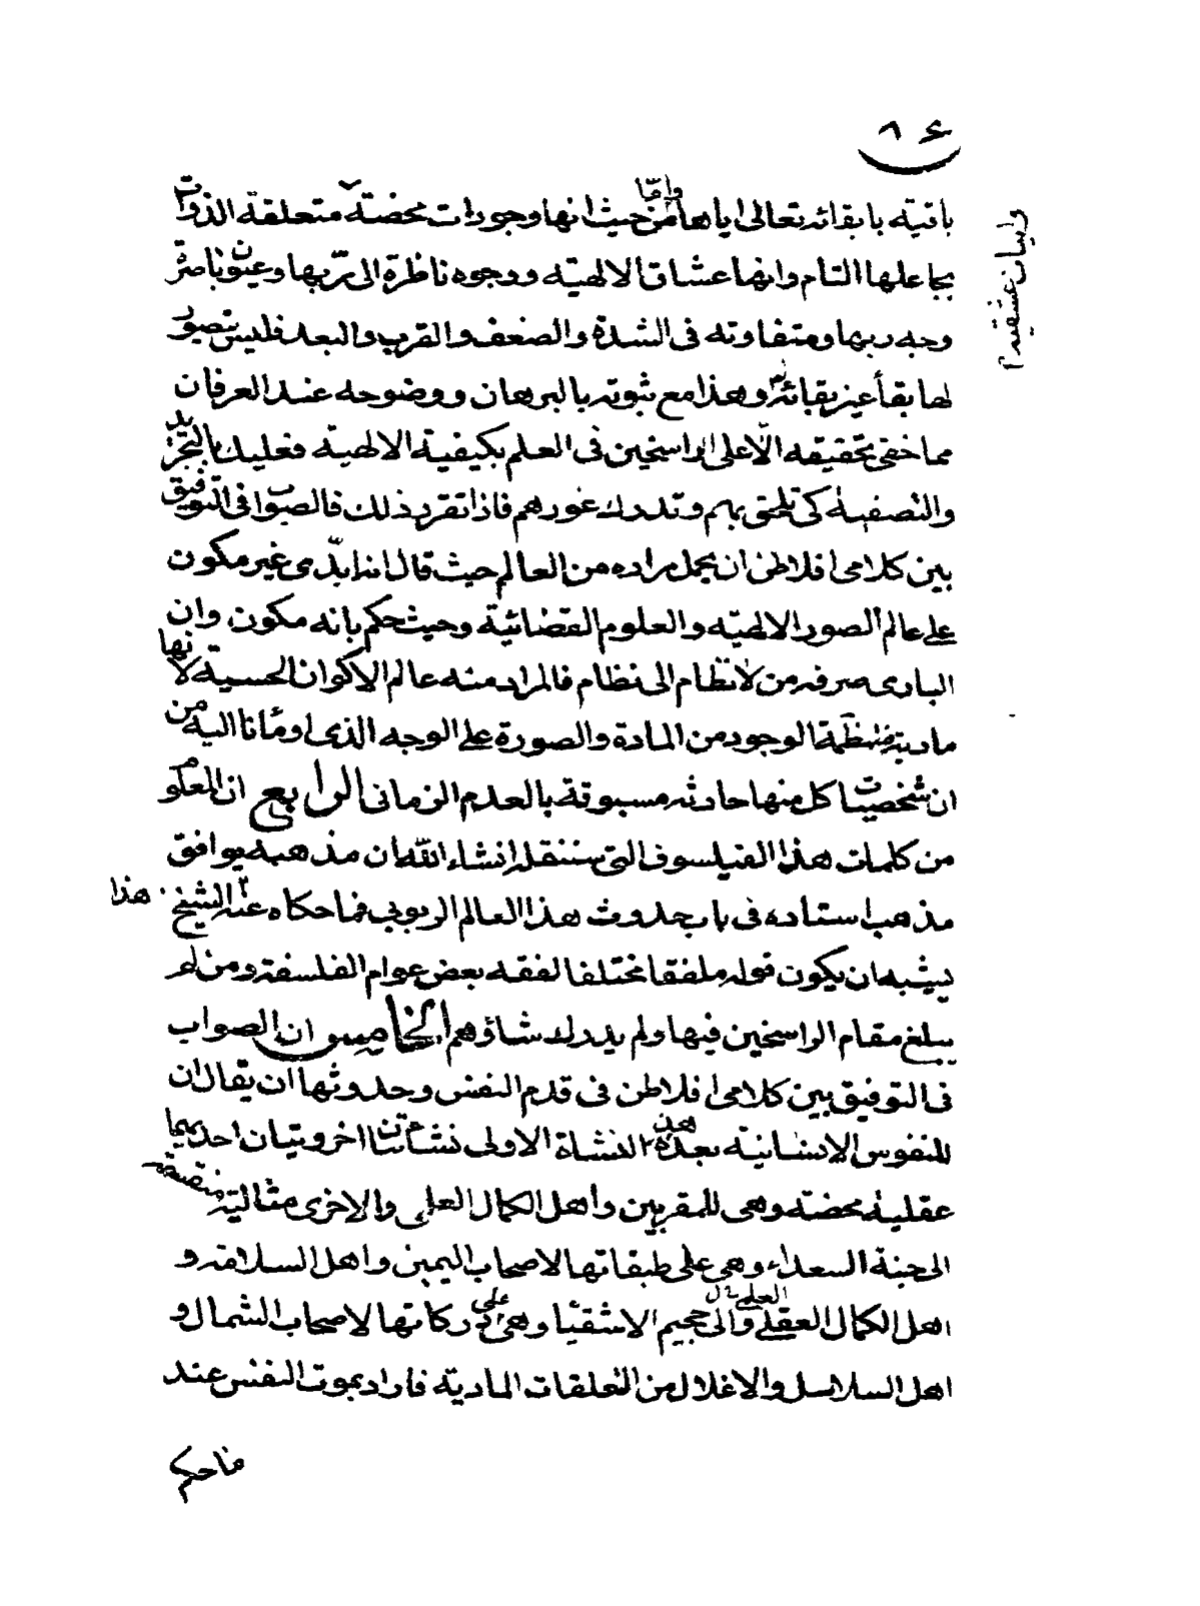 ٨٤
باقية بابقائه تعالى اياها وامّا من حيث انها وجودات محضة متعلقة الذوات
بجاعلها التام وانها عشاق الالهيّة ووجوه ناظرة الى ربّها وعيون ناضرة
وجه ربها ومتفاوتة فى الشدة والضعف والقرب والبعد فليس يتصور
لها بقأ غير بقائه وهذا مع ثبوته بالبرهان ووضوحه عند العرفان
مما خفى تحقيقه الّا على الراسخين فى العلم بكيفية الالهية فعليك بالتجريد
والتصفية كى تلحق بهم وتدرك غورهم فاذا تقرر ذلك فالصواب فى التوفيق
بين كلامى افلاطن ان يحمل مراده من العالم حيث قال انه ابدّى غير مكون
على عالم الصور الالهيّة والعلوم القضائية وحيث حكم بانه مكون وان
البارى صرفه من لا نظام الى نظام فالمراد منه عالم الاكوان الحسية لانها
مادية منتظمة الوجود من المادة والصورة على الوجه الذى اومأنا اليه من
ان شخصيتا كل منها حادثه مسبوقة بالعدم الزمانى الرابع ان المعلوم
من كلمات هذا الفيلسوف التى سننقله انشاء الله ان مذهبه يوافق
مذهب استاده فى باب حدوث هذا العالم الربوبى فما حكاه عنه الشيخ هذا
يشبه ان يكون قوله ملفقا مختلفا لفقه بعض عوام الفلسفة ومن لم
يبلغ مقام الراسخين فيها ولم يدرك شاؤهم الخامس ان الصواب
فى التوفيق بين كلامى افلاطن فى قدم النفس وحدوثها ان يقال ان
للنفوس الانسانية بعد هذه النشاة الاولى نشاتان اخرويتيان احديهما
عقلية محضة وهى للمقربين واهل الكمال العلمى والاخرى مثالية منقسمة
الى جنة السعداء وهى على طبقاتها لاصحاب اليمين واهل السلامة و
اهل الكمال العقلى العلمى والى جحيم الاشقيأ وهى على دركاتها لاصحاب الشمال و
اهل السلاسل والاغلال من التعلقات المادية فاراد بموت النفس عند